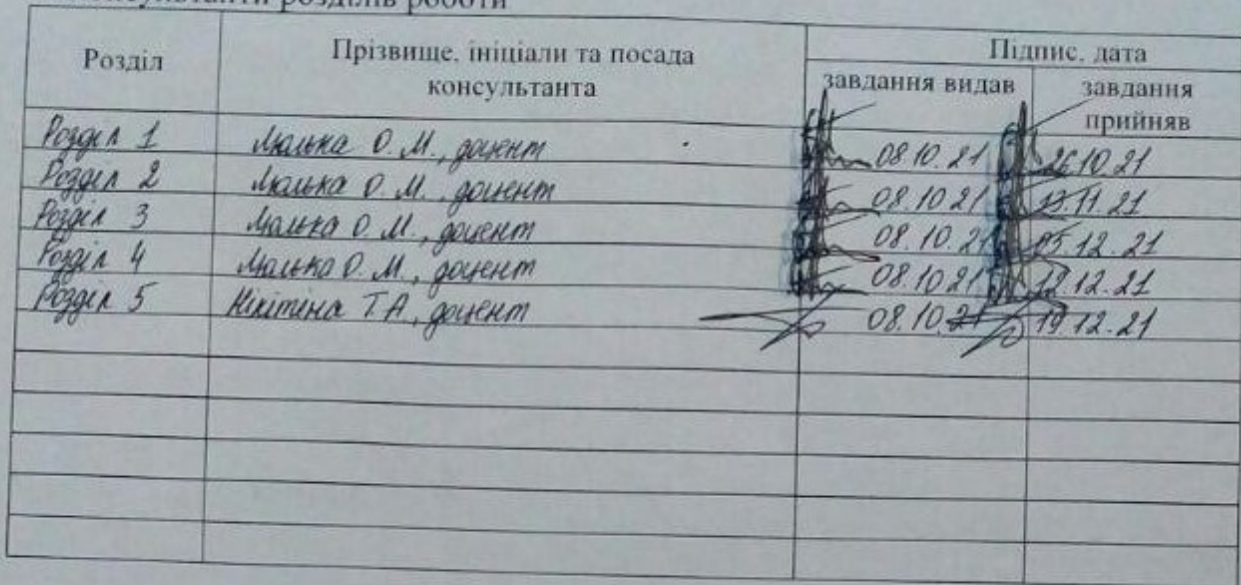 розділів роботи
Розділ
Прізвище, ініціали та посада
консультанта
Підпис, дата
завдання видав
завдання
прийняв
Розділ 1 Люлька О. М., доцент 08.10.21 26.10.21
Розділ 2 Люлька О. М., доцент 08.10.21 11.21
Розділ 3 Люлька О. М., доцент 08.10.21 05.12.21
Розділ 4 Люлька О. М., доцент 08.10.21 12.12.21
Розділ 5 Нікітіна Т.А., доцент 08.10.21 19.12.21